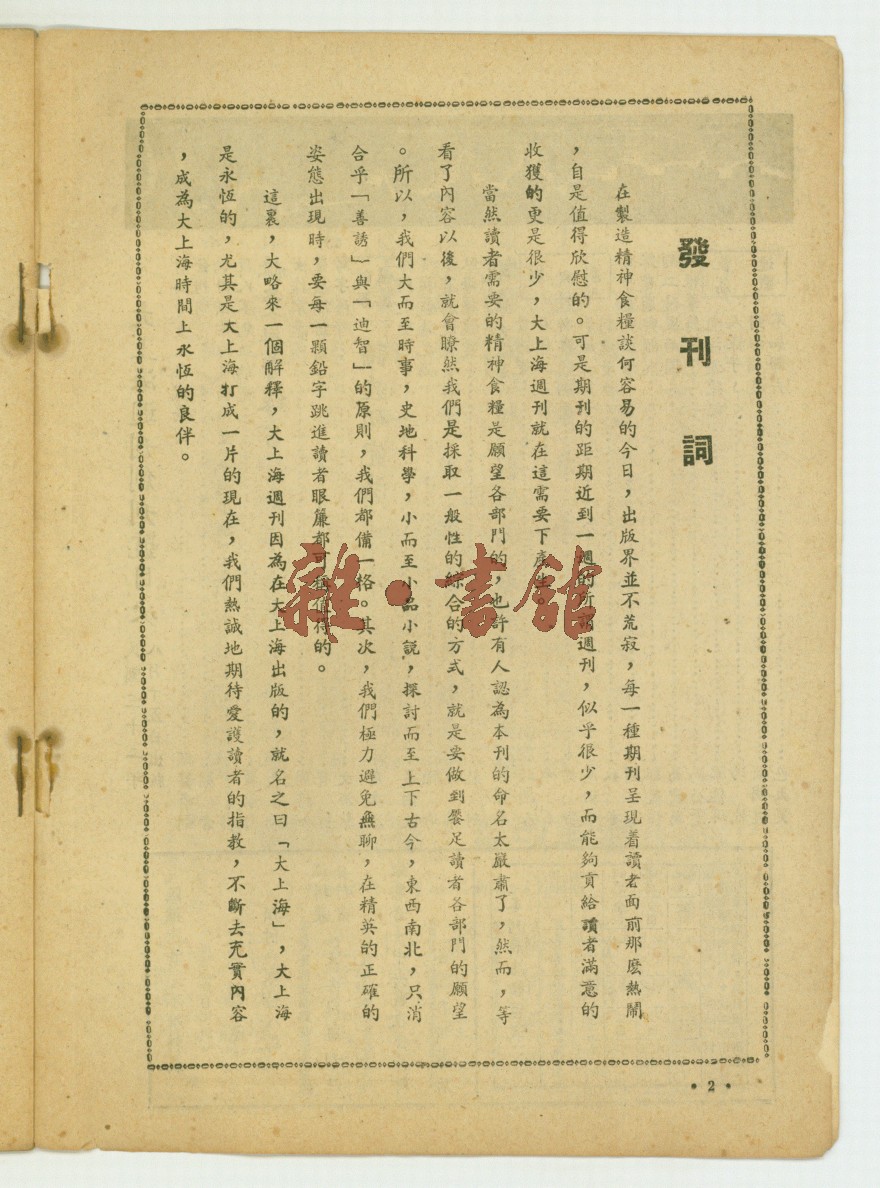 發刊詞
在製造精神食糧談何容易的今日，出版界並不荒寂，每一種期刊呈現着讀者面前那麽熱鬧
，自是值得欣慰的。可是期刊的距期近到一週的所謂週刊，似乎很少，而能夠貢給讀者滿意的
收獲的更是很少，大上海週刊就在這需要下產生。
當然讀者需要的精神食糧是願望各部門的，也許有人認為本刊的命名太嚴肅了，然而，等
看了內容以後，就會瞭然我們是採取一般性的綜合的方式，就是要做到饜足讀者各部門的願望
。所以，我們大而至時事，史地科學，小而至小品小説，探討而至上下古今，東西南北，只消
合乎「善誘」與「迪智」的原則，我們都備一格。其次，我們極力避免無聊，在精英的正確的
姿態出現時，要每一顆鉛字跳進讀者眼簾都可是值得的。
這裏，大略來一個解釋，大上海週刊因為在大上海出版的，就名之曰「大上海」，大上海
是永恆的，尤其是大上海打成一片的現在，我們熱誠地期待愛護讀者的指教，不斷去充實內容
，成為大上海時間上永恆的良伴。
雜·書館
• 2 •